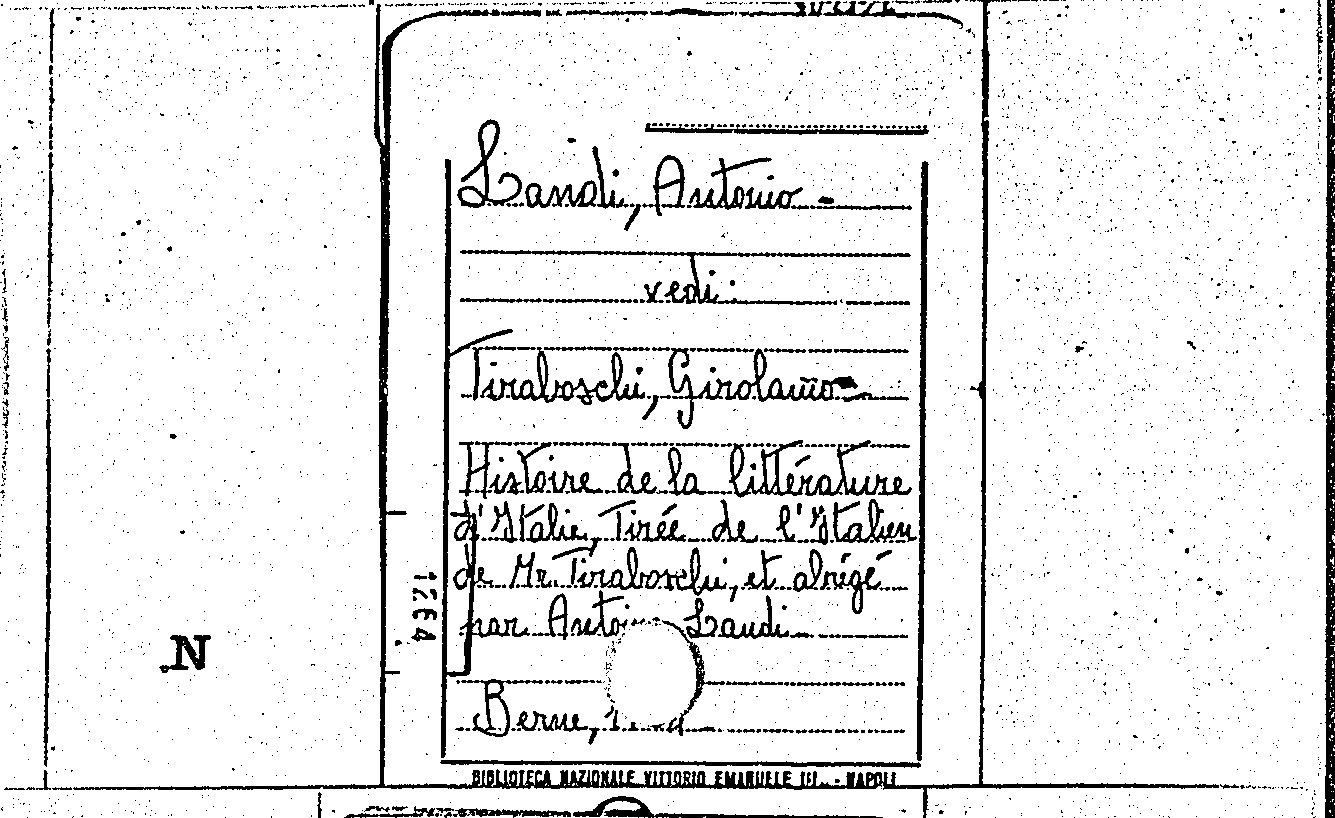 Landi, Antonio -
vedi:
Tiraboschi, Girolamo -
Histoire de la littérature
d'Italie, Tirée de l'Italien
de Mr. Tiraboschi, et abrégé
par Landi
Berne,
BIBLIOTECA NAZIONALE VITTORIO EMANUELE III - NAPOLI
N